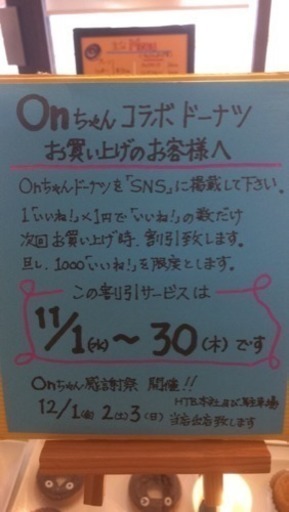 Menu
Onちゃん コラボドーナツ
お買い上げのお客様へ
Onちゃんドーナツを「SNS」に掲載して下さい。
1「いいね!」×1円で「いいね!」の数だけ
次回お買い上げ時、割引致します。
旦し、1000「いいね!」を限度とします。
この割引サービスは
11/1(水)〜30(木)です
Onちゃん感謝祭 開催!!
HTB本社 駐車場
12/1(金) 2(土) 3(日) 当店出店致します